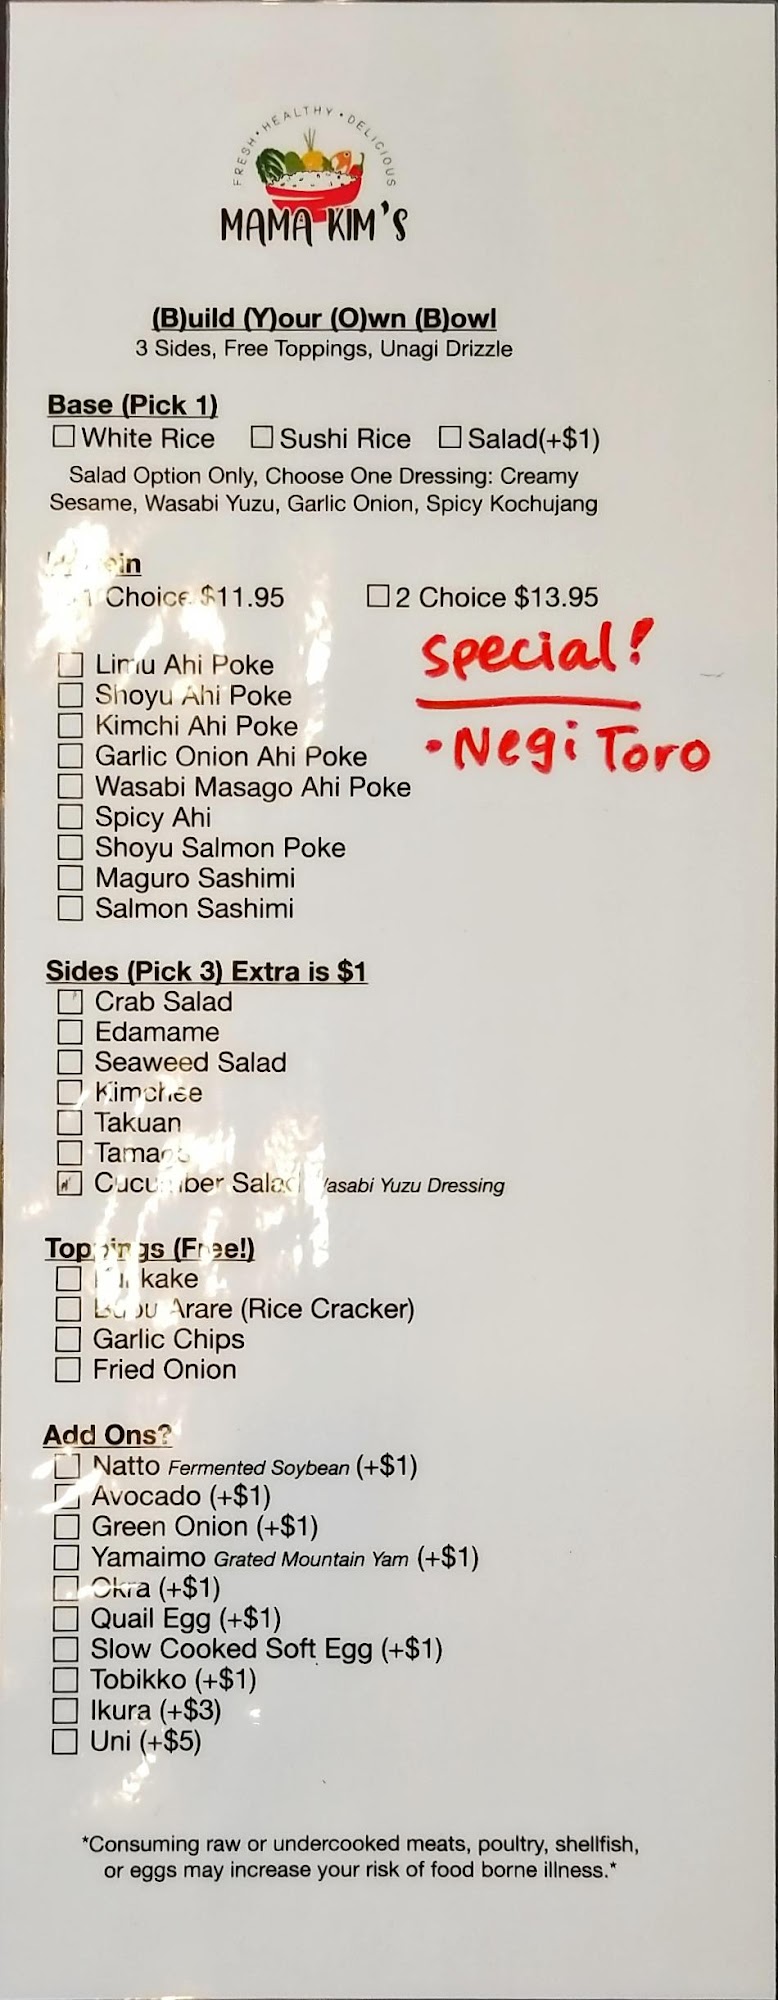 FRESH • HEALTHY • DELICIOUS
MAMA KIM'S
(B)uild (Y)our (O)wn (B)owl
3 Sides, Free Toppings, Unagi Drizzle
Base (Pick 1)
White Rice Sushi Rice Salad(+$1)
Salad Option Only, Choose One Dressing: Creamy
Sesame, Wasabi Yuzu, Garlic Onion, Spicy Kochujang
1 Choice $11.95 2 Choice $13.95
special!
• Negi Toro
Limu Ahi Poke
Shoyu Ahi Poke
Kimchi Ahi Poke
Garlic Onion Ahi Poke
Wasabi Masago Ahi Poke
Spicy Ahi
Shoyu Salmon Poke
Maguro Sashimi
Salmon Sashimi
Sides (Pick 3) Extra is $1
Crab Salad
Edamame
Seaweed Salad
Kimchee
Takuan
Cucumber Salad Wasabi Yuzu Dressing
Toppings (Free!)
Arare (Rice Cracker)
Garlic Chips
Fried Onion
Add Ons?
Natto Fermented Soybean (+$1)
Avocado (+$1)
Green Onion (+$1)
Yamaimo Grated Mountain Yam (+$1)
Okra (+$1)
Quail Egg (+$1)
Slow Cooked Soft Egg (+$1)
Tobikko (+$1)
Ikura (+$3)
Uni (+$5)
*Consuming raw or undercooked meats, poultry, shellfish,
or eggs may increase your risk of food borne illness.*